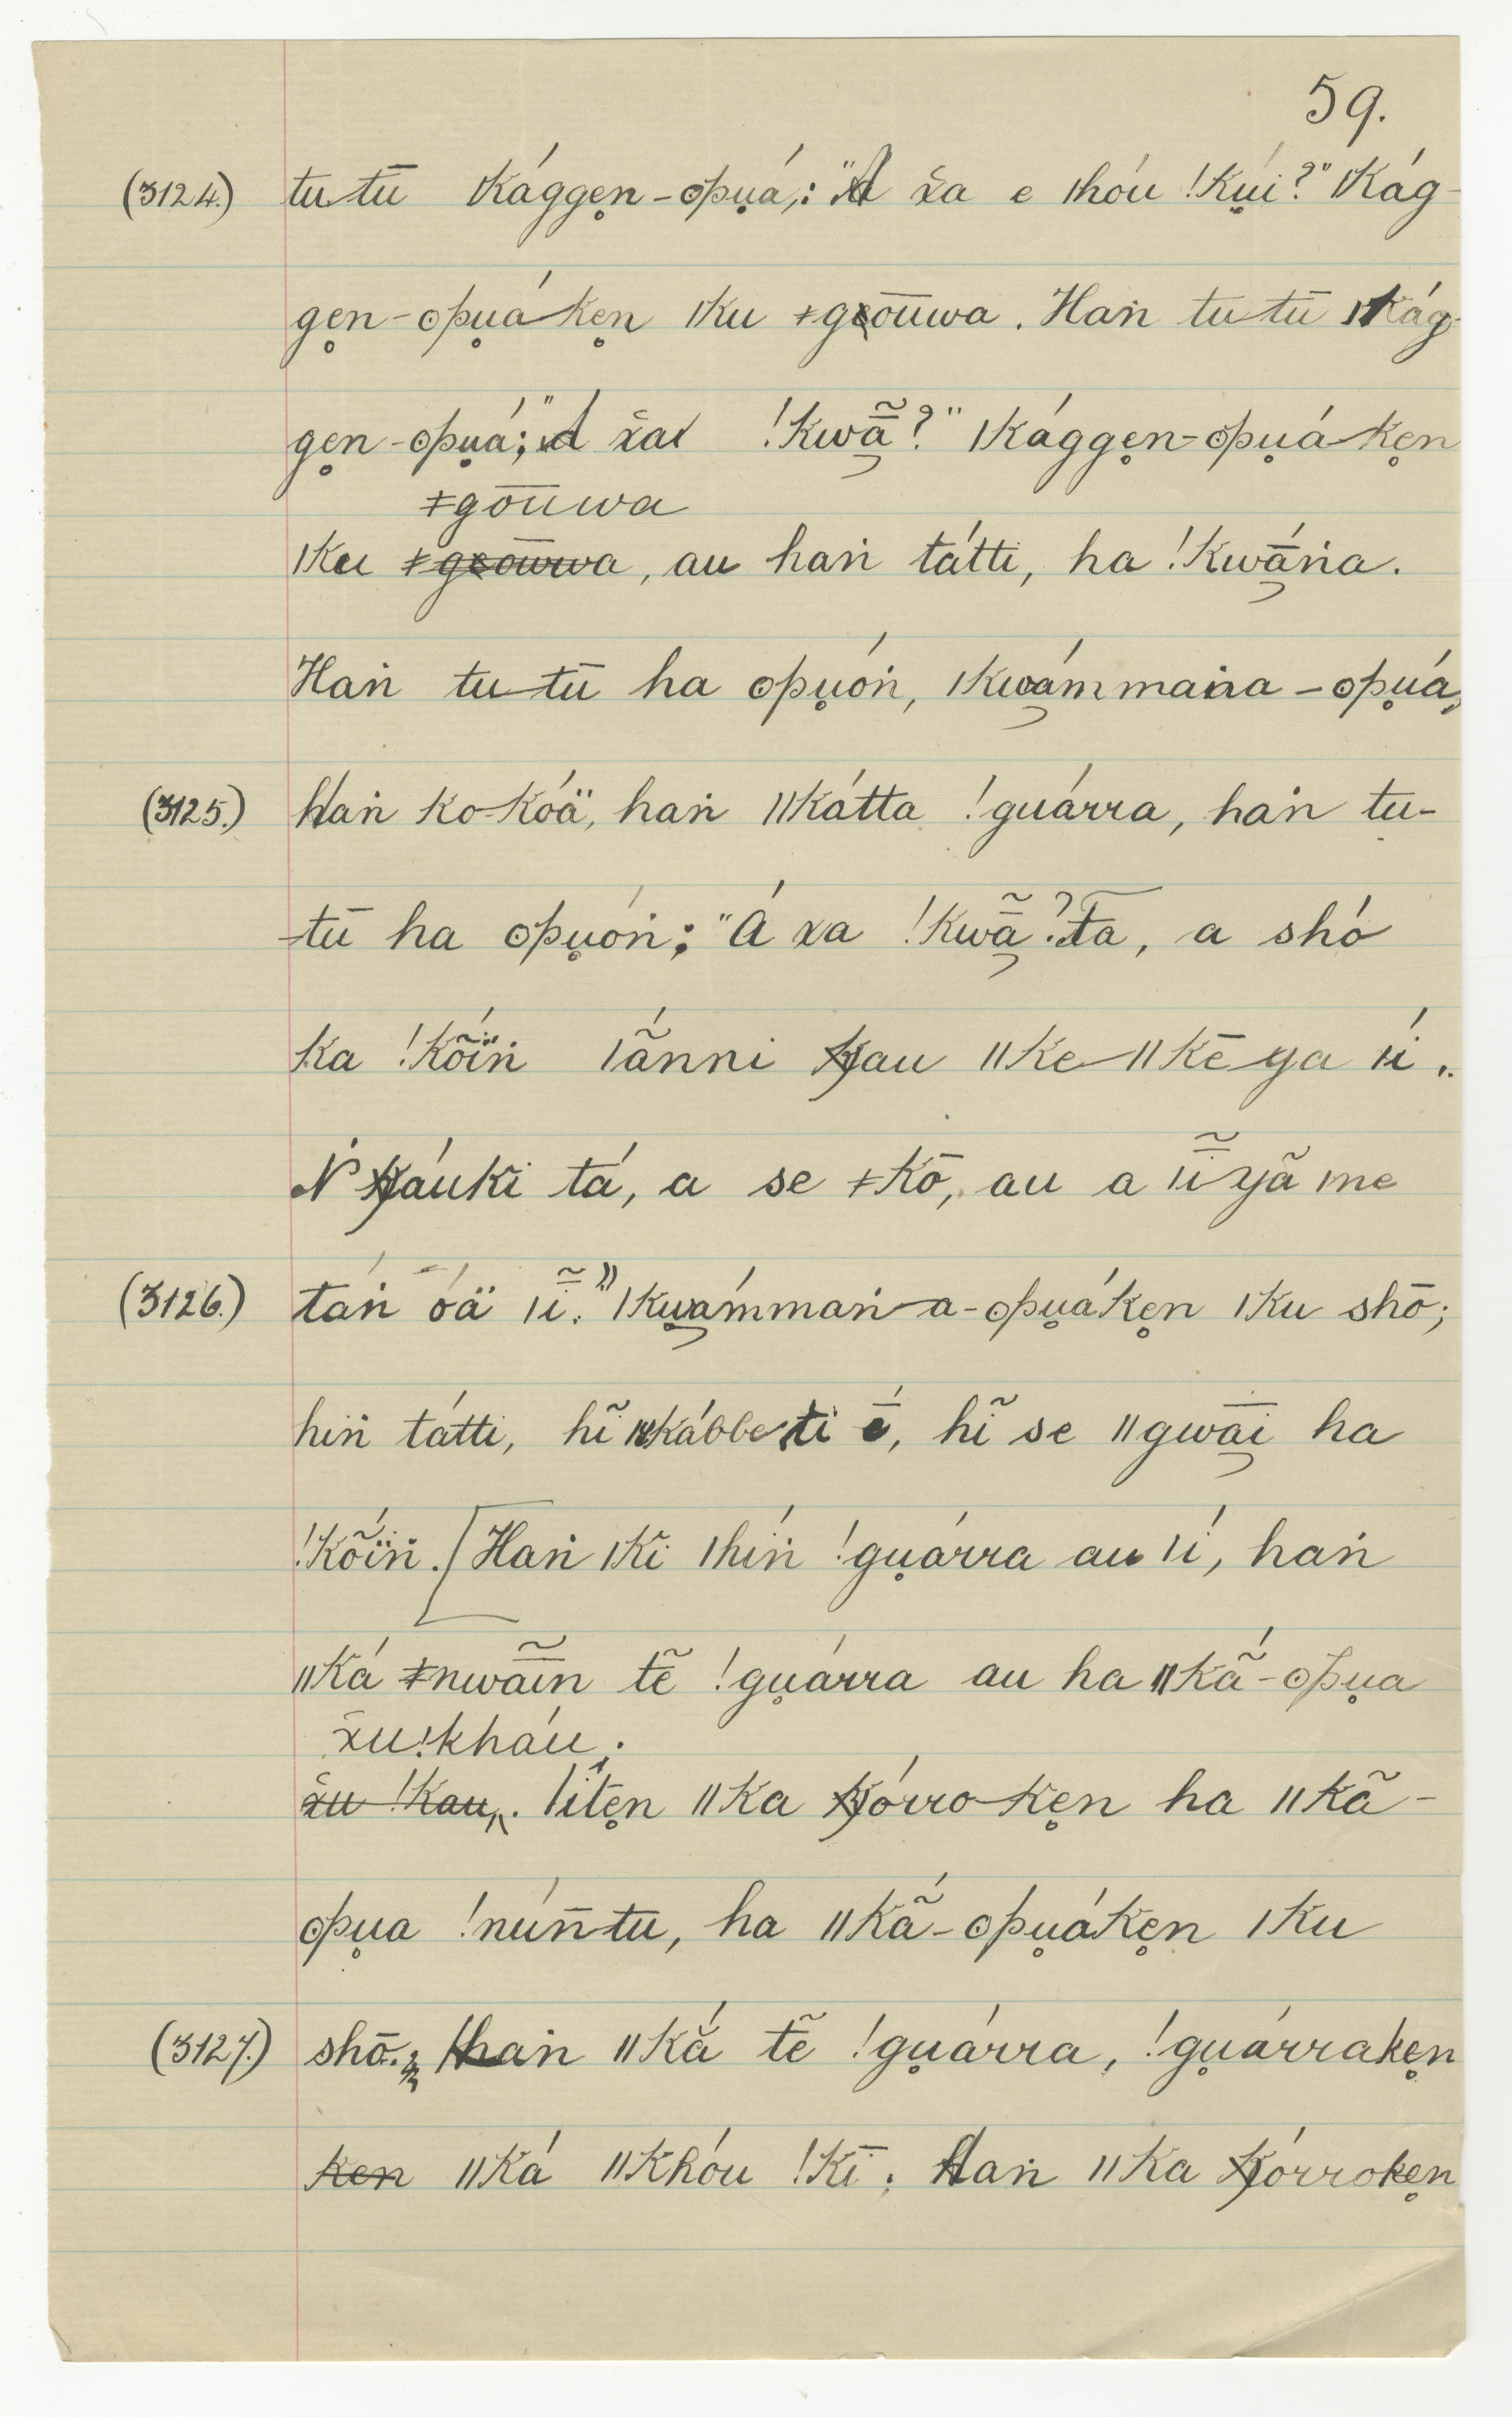 59.
(3124.) tu-tū ǀkággẹn-ʘpụá,: "Á x̌a e ǀhóu !kụi?" ǀkág-
gẹn-ʘpụákẹn ǀku ǂgōuwa. Haṅ tu-tū ǀkág-
gẹn-ʘpụá; "Á x̌aı !kwā̰̃?" ǀkággẹn-ʘpụá-kẹn
ǂgōuwa
ǀku ǂgxōuwa, au haṅ tátti, ha !kwā́ṅa.
Haṅ tu-tū ha ʘpụóṅ, ǀkwámmaṅa-ʘpụá,
(3125.) Haṅ ko-kóä, haṅ ǁkátta !guárra, haṅ tu-
tū ha ʘpụóṅ; "Á xa !kwā̃? Ta, a shó
ka !kṍïṅ ǀã́nni x̣au ǁke-ǁkēya ǀí.
Ṅ x̣áuki tá, a se ǂkō, au a ǀī̃ yã me
(3126.) táṅ óä ǀī̃." ǀkwámmaṅ-a-ʘpụákẹn ǀku shō;
hiṅ tátti, hĩ ǀkábbe-ti é̄, hĩ se ǁgwāi ha
!kṍïṅ. [Haṅ ǀkĭ ǀhíṅ !gụárra au ǀí, haṅ
ǁká ǂnwā̃īn tẽ !gụárra au ha ǁkã́-ʘpụa
x̌u!kháu.
x̌u !kau,. ǀítẹn ǁka x̣órro-kẹn ha ǁkã-
ʘpụa !núṅ̄tu, ha ǁkã́-ʘpụákẹn ǀku
(3127.) shō.; haṅ ǁkắ tẽ !gụárra, !gụárrakẹn
ken ǁká ǁkhóu !kī. Haṅ ǁka x̣órrokẹn